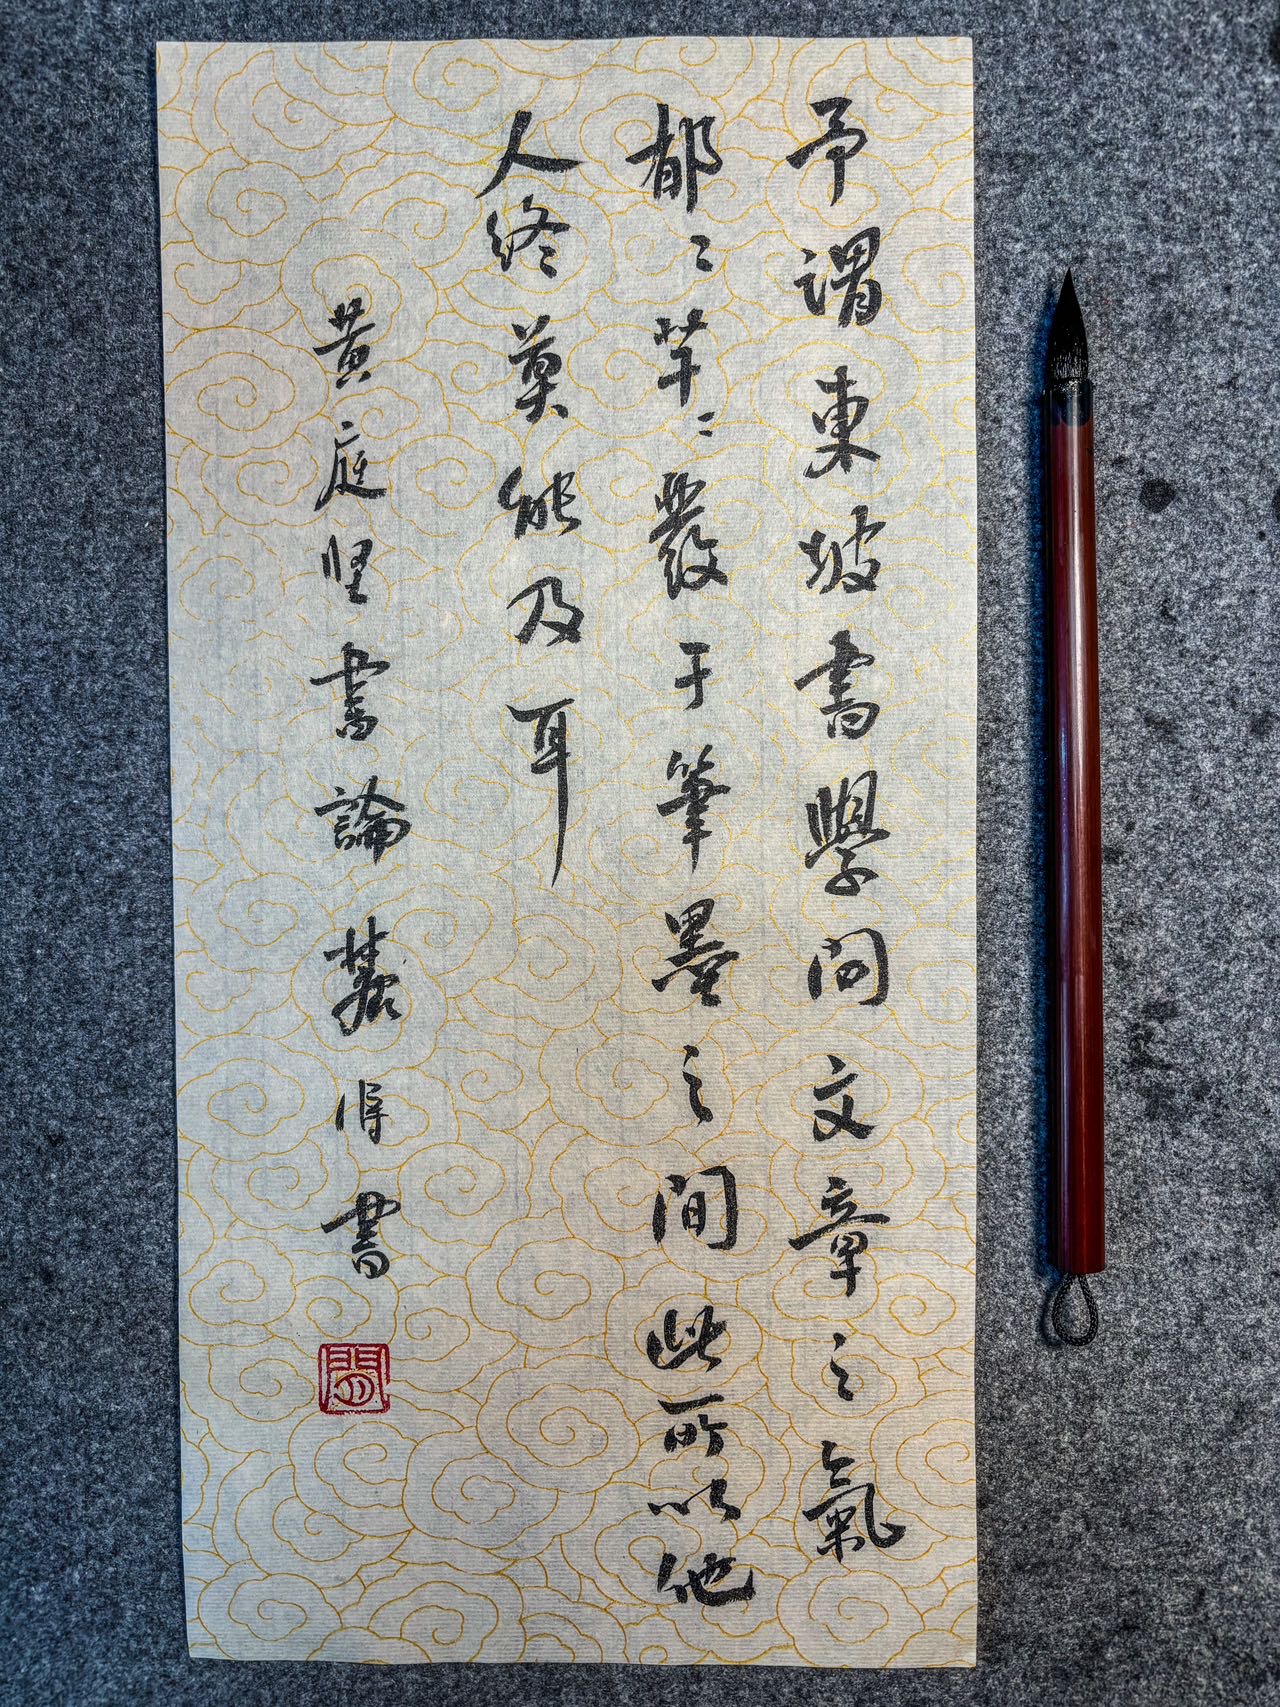 予謂東坡書學問文章之氣
郁〻芊〻發于筆墨之間此所以他
人終莫能及耳
黄庭坚書論 書